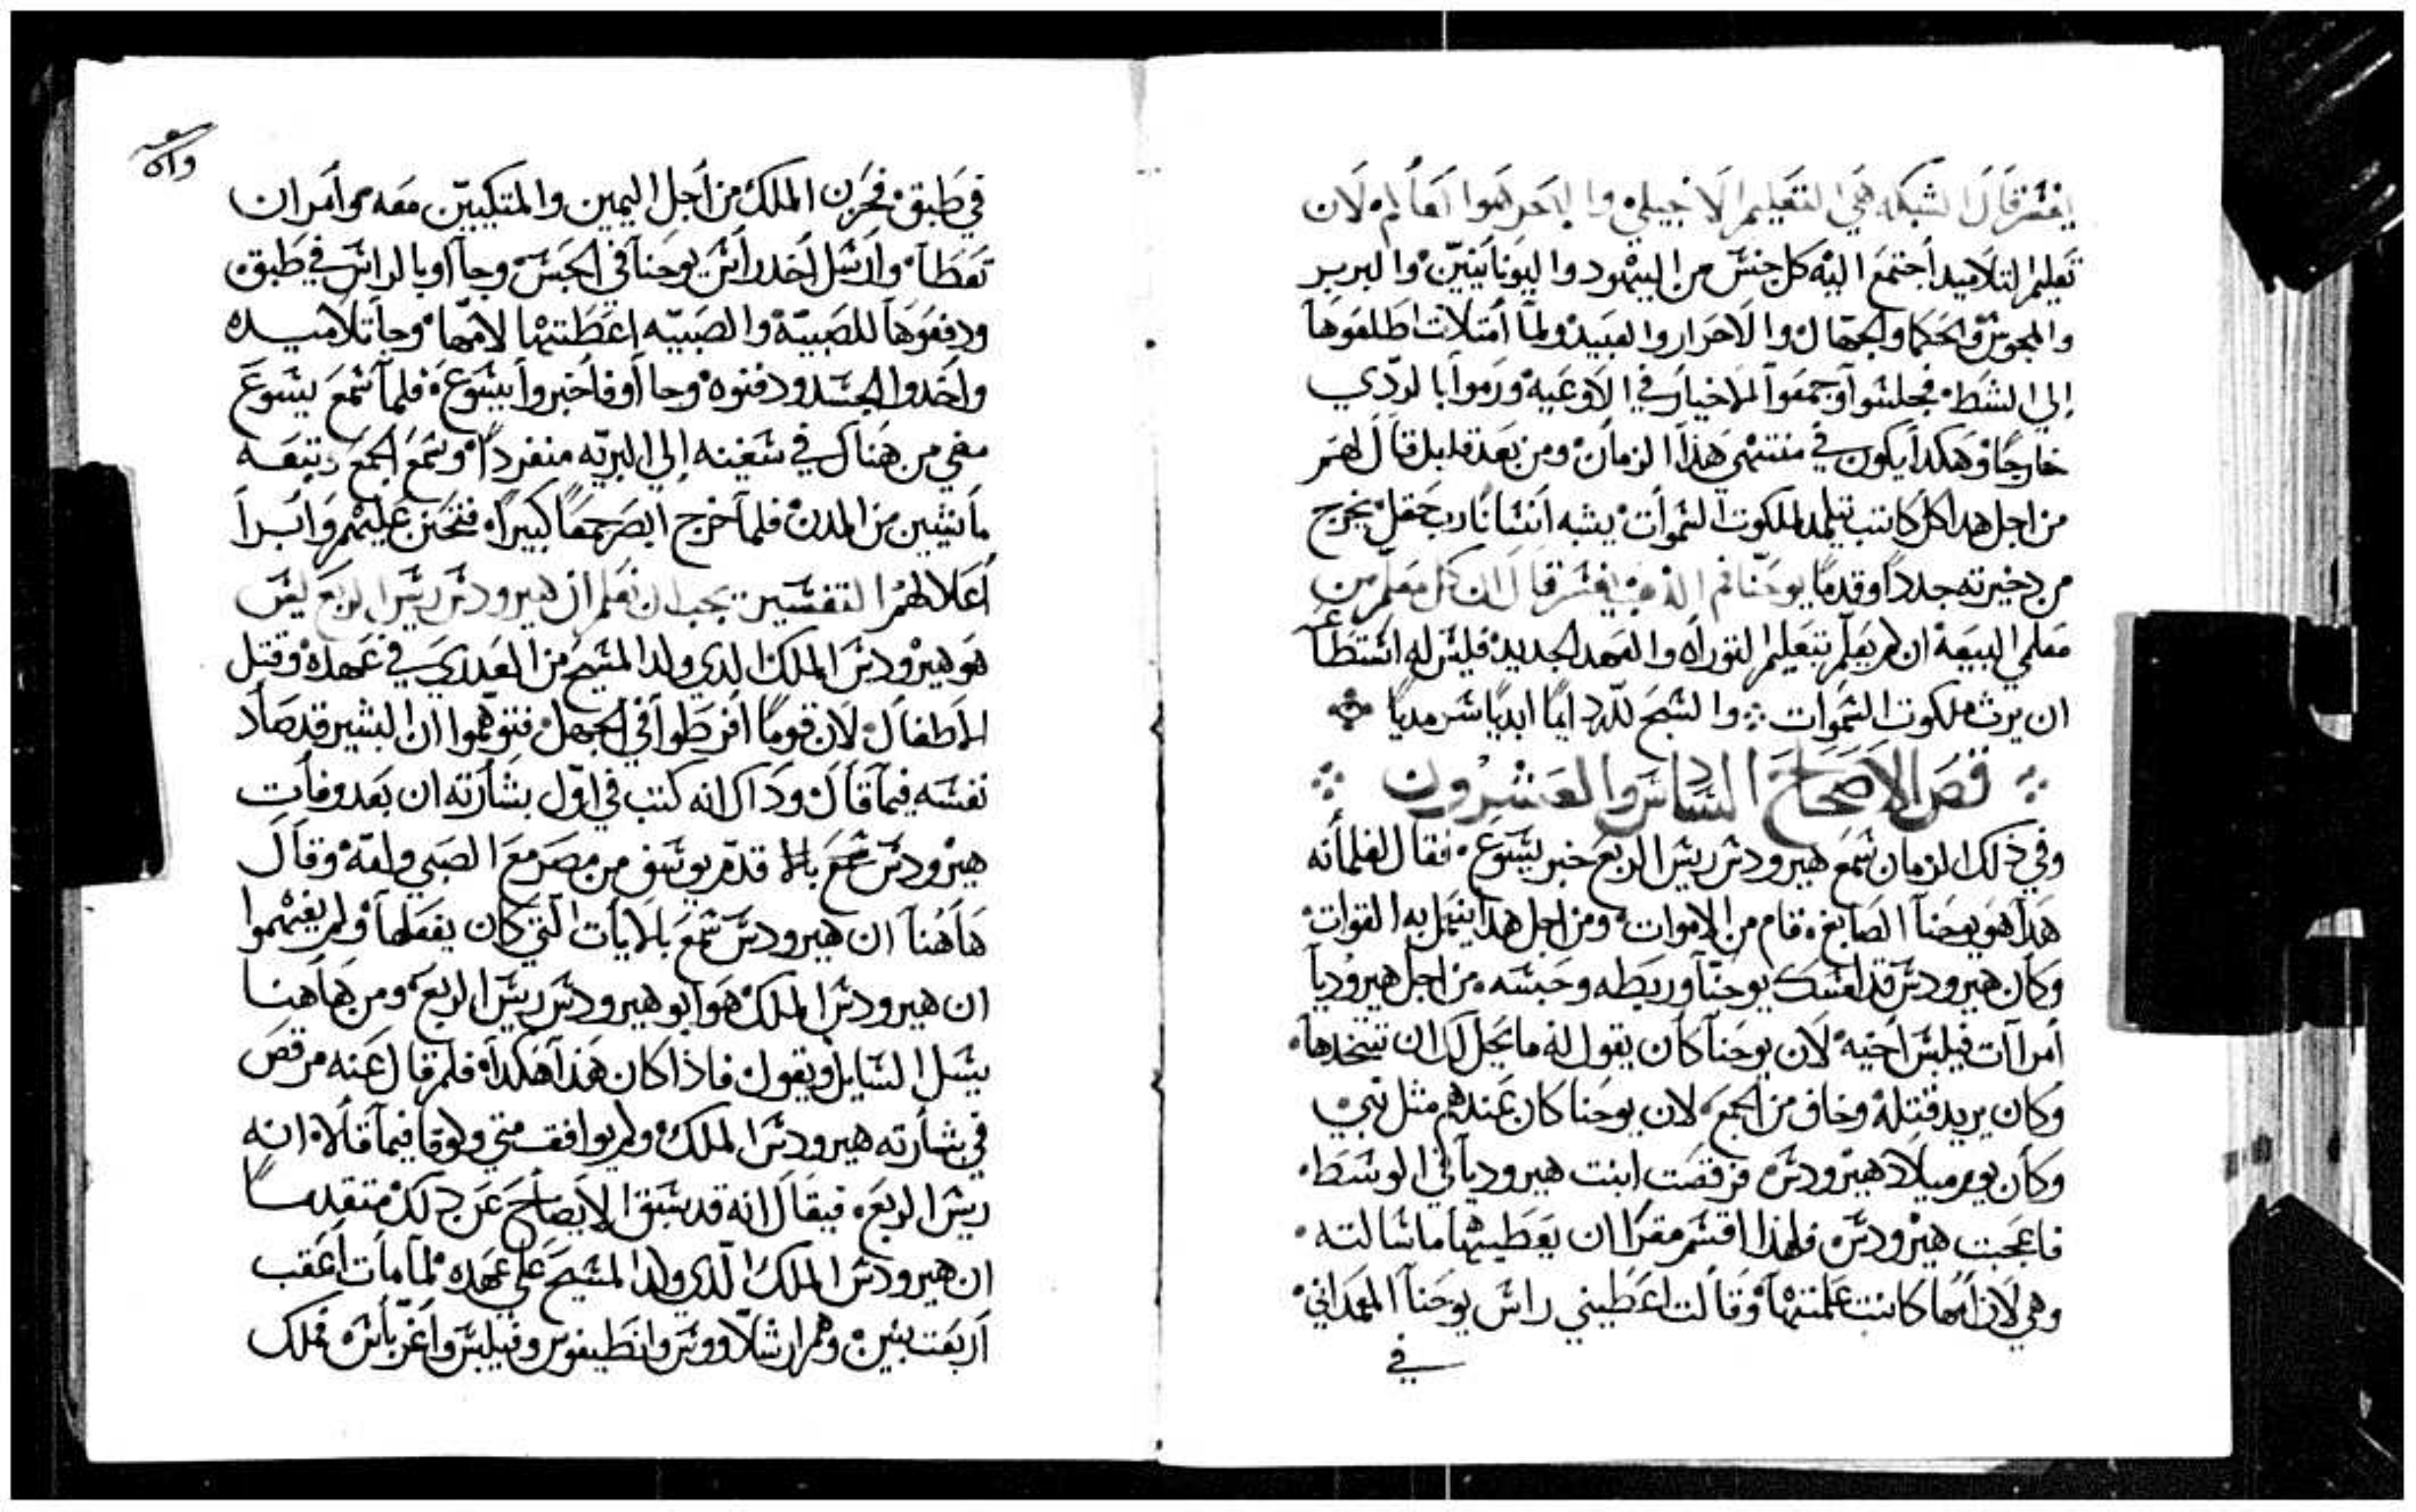 يفسر قال الشبكه هي التعليم الانجيلي والبحر هوا العالم لان
تعليم التلاميد اجتمع اليه كل جنس من اليهود واليونانيين والبربر
والمجوس والحكما والجهال والاحرار والعبيد ولما امتلات اطلعوها
إلي الشط فجلسوا وجمعوا الاخيار في الاوعيه ورموا بالردي
خارجا وهكدا يكون في منتهي هذا الزمان ومن بعد قال لهم
من اجل هدا كل كاتب يتلمد لملكوت السموات يشبه انسانا رب حقل يخرج
من دخيرته جددا وقدما يوحنا فم الدهب يفسر قال ان كل معلم من
معلمي البيعه ان لم يعلم بتعليم التوراه والعهد الجديد فليس له استطاع
ان يرث ملكوت السموات والسبح لله دايما ابديا سرمديا
فص الاصحاح السادس والعشرون
وفي ذلك الزمان سمع هيرودس ريس الربع خبر يسوع فقال لغلمانه
هدا هو يوحنا الصابغ قام من الاموات ومن اجل هدا يعمل به القوات
وكان هيرودس قد امسك يوحنا وربطه وحبسه من اجل هيروديا
امراات فيلبس اخيه لان يوحنا كان يقول له ما يحل لك ان تتخدها
وكان يريد قتله وخاف من الجمع لان يوحنا كان عندهم مثل نبي
وكان يوم ميلاد هيرودس فرقصت ابنت هيروديا في الوسط
فاعجبت هيرودس فلهذا اقسم مقرا ان يعطيها ما سالته
وهي لان امها كانت علمتها وقالت اعطيني راس يوحنا المعمداني
في
في طبق فحزن الملك من اجل اليمين والمتكيين معه وامر ان
تعطا وارسل اخد راس يوحنا في الحبس وجااوا بالراس في طبق
ودفعوها للصبيه والصبيه اعطتها لامها وجا تلاميده
واخدوا الجسد ودفنوه وجااوا فاخبروا يسوع فلما سمع يسوع
مضي من هناك في سفينه إلي البريه منفردا وسمع الجمع وتبعه
ماشيين من المدن فلما خرج ابصر جمعا كبيرا فتحنن عليهم وابرا
أعلالهم التفسير يجب ان نعلم ان هيرودس ريس الربع ليس
هو هيرودس الملك الدي ولد المسيح من العدري في عهده وقتل
الاطفال لان قوما افرطوا في الجهل فتوهموا ان البشير قد صاد
نفسه فيما قال وداك انه كتب في اول بشارته ان بعد وفات
هيرودس قدم يوسف من مصر مع الصبي وامه وقال
هاهنا ان هيرودس سمع بالايات التي كان يفعلها ولم يفهموا
ان هيرودس الملك هو ابو هيرودس ريس الربع ومن هاهنا
يسل السايل ويقول فاذا كان هذا هكدا فلم قال عنه مرقص
في بشارته هيرودس الملك ولم يوافق متي ولوقا فيما قالاه انه
ريس الربع فيقال انه قد سبق الايضاح عن دلك متقدما
ان هيرودس الملك الدي ولد المسيح علي عهده لما مات اعقب
اربعت بنين وهم ارشلاووس وانطيفوس وفيلبس واغرباس فملك